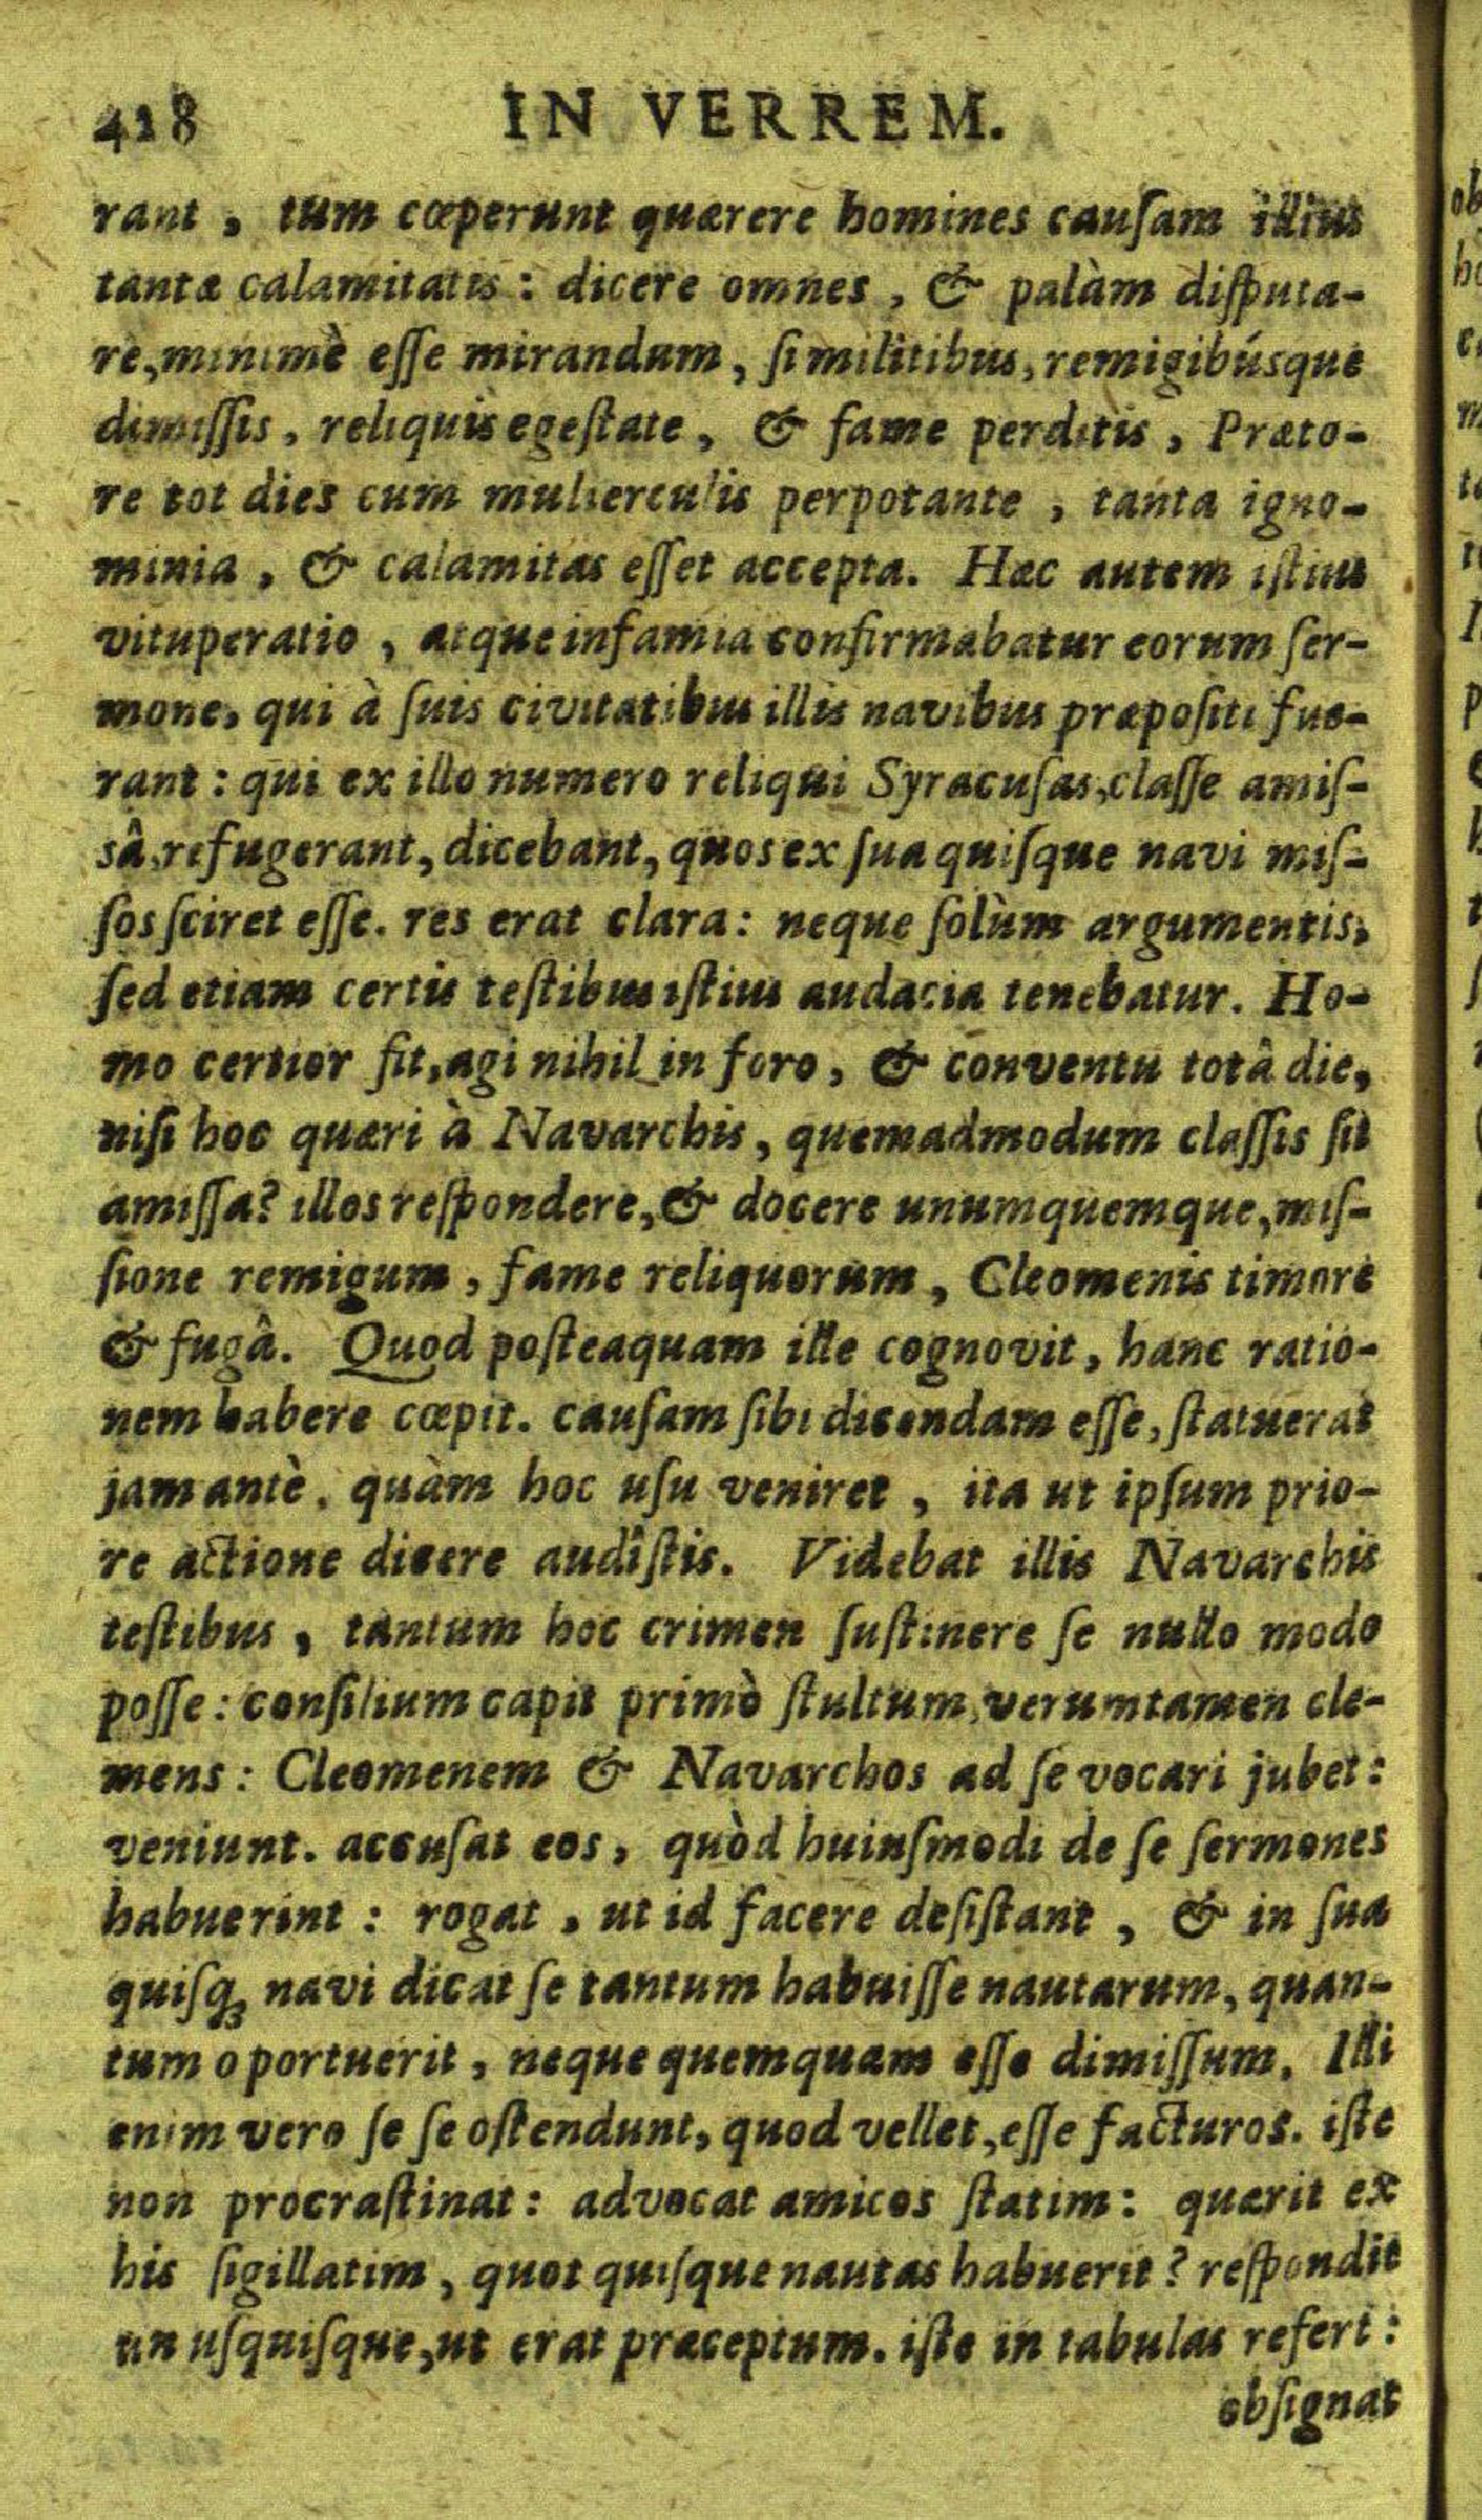 418 IN VERREM.
rant, tum cœperunt quærere homines cauſam illius
tantæ calamitatis: dicere omnes, & palàm diſputa-
re, minimè eſſe mirandum, ſi militibus, remigibúsque
dimiſſis, reliquis egeſtate, & fame perditis, Præto-
re tot dies cum mulierculis perpotante, tanta igno-
minia, & calamitas eſſet accepta. Hæc autem iſtius
vituperatio, atque infamia confirmabatur eorum ſer-
mone, qui à ſuis civitatibus illis navibus præpoſiti fue-
rant: qui ex illo numero reliqui Syracuſas, claſſe amiſ-
sâ, refugerant, dicebant, quos ex ſua quiſque navi miſ-
ſos ſciret eſſe. res erat clara: neque ſolùm argumentis,
ſed etiam certis teſtibus iſtius audacia tenebatur. Ho-
mo certior fit, agi nihil in foro, & conventu totâ die,
niſi hoc quæri à Navarchis, quemadmodum claſſis ſit
amiſſa? illos reſpondere, & docere unumquemque, miſ-
ſione remigum, fame reliquorum, Cleomenis timore
& fugâ. Quod poſteaquam ille cognovit, hanc ratio-
nem habere cœpit. cauſam ſibi dicendam eſſe, ſtatuerat
jam antè, quàm hoc uſu veniret, ita ut ipſum prio-
re actione dicere audîſtis. Videbat illis Navarchis
teſtibus, tantum hoc crimen ſuſtinere ſe nullo modo
poſſe: conſilium capit primò ſtultum, verumtamen cle-
mens: Cleomenem & Navarchos ad ſe vocari jubet:
veniunt. accuſat eos, quòd huiuſmodi de ſe ſermones
habuerint: rogat, ut id facere deſiſtant, & in ſua
quiſq; navi dicat ſe tantum habuiſſe nautarum, quan-
tum oportuerit, neque quemquam eſſe dimiſſum. Illi
enim vero ſe ſe oſtendunt, quod vellet, eſſe facturos. iſte
non procraſtinat: advocat amicos ſtatim: quærit ex
his ſigillatim, quot quiſque nautas habuerit? reſpondit
un uſquiſque, ut erat præceptum. iſte in tabulas refert:
obſignat